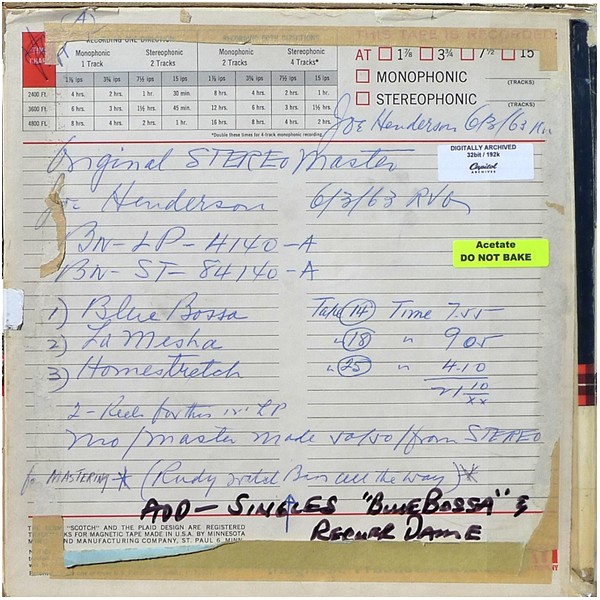 RECORDING ONE DIRECTION
THIS TAPE IS RECORDED
Monophonic 1 Track Stereophonic 2 Tracks Monophonic 2 Tracks Stereophonic 4 Tracks*
1⅞ ips 3¾ ips 7½ ips 15 ips 1⅞ ips 3¾ ips 7½ ips 15 ips
2400 Ft. 4 hrs. 2 hrs. 1 hr. 30 min. 8 hrs. 4 hrs. 2 hrs. 1 hr.
3600 Ft. 6 hrs. 3 hrs. 1½ hrs. 45 min. 12 hrs. 6 hrs. 3 hrs. 1½ hrs.
4800 Ft. 8 hrs. 4 hrs. 2 hrs. 1 hr. 16 hrs. 8 hrs. 4 hrs. 2 hrs.
*Double these times for 4-track monophonic recording
AT 1⅞ 3¾ 7½ 15
MONOPHONIC (TRACKS)
STEREOPHONIC (TRACKS)
Joe Henderson 6/3/63
Original STEREO Master
DIGITALLY ARCHIVED
32bit / 192k
Capitol
ARCHIVES
Joe Henderson 6/3/63 RVG
BN-LP-4140-A
BN-ST-84140-A
Acetate
DO NOT BAKE
1) Blue Bossa Take 14 Time 7.55
2) La Mesha " 18 " 9.05
3) Homestretch " 25 " 4.10
21 10
xx
2-Reels for this LP
Mo/master made 50/50/from STEREO
for MASTERING * (Rudy watch Bass all the way) *
ADD - SINGLES "BLUE BOSSA" &
RECORDA DAME
"SCOTCH" AND THE PLAID DESIGN ARE REGISTERED
FOR MAGNETIC TAPE MADE IN U.S.A. BY MINNESOTA
AND MANUFACTURING COMPANY, ST. PAUL 6, MINN.